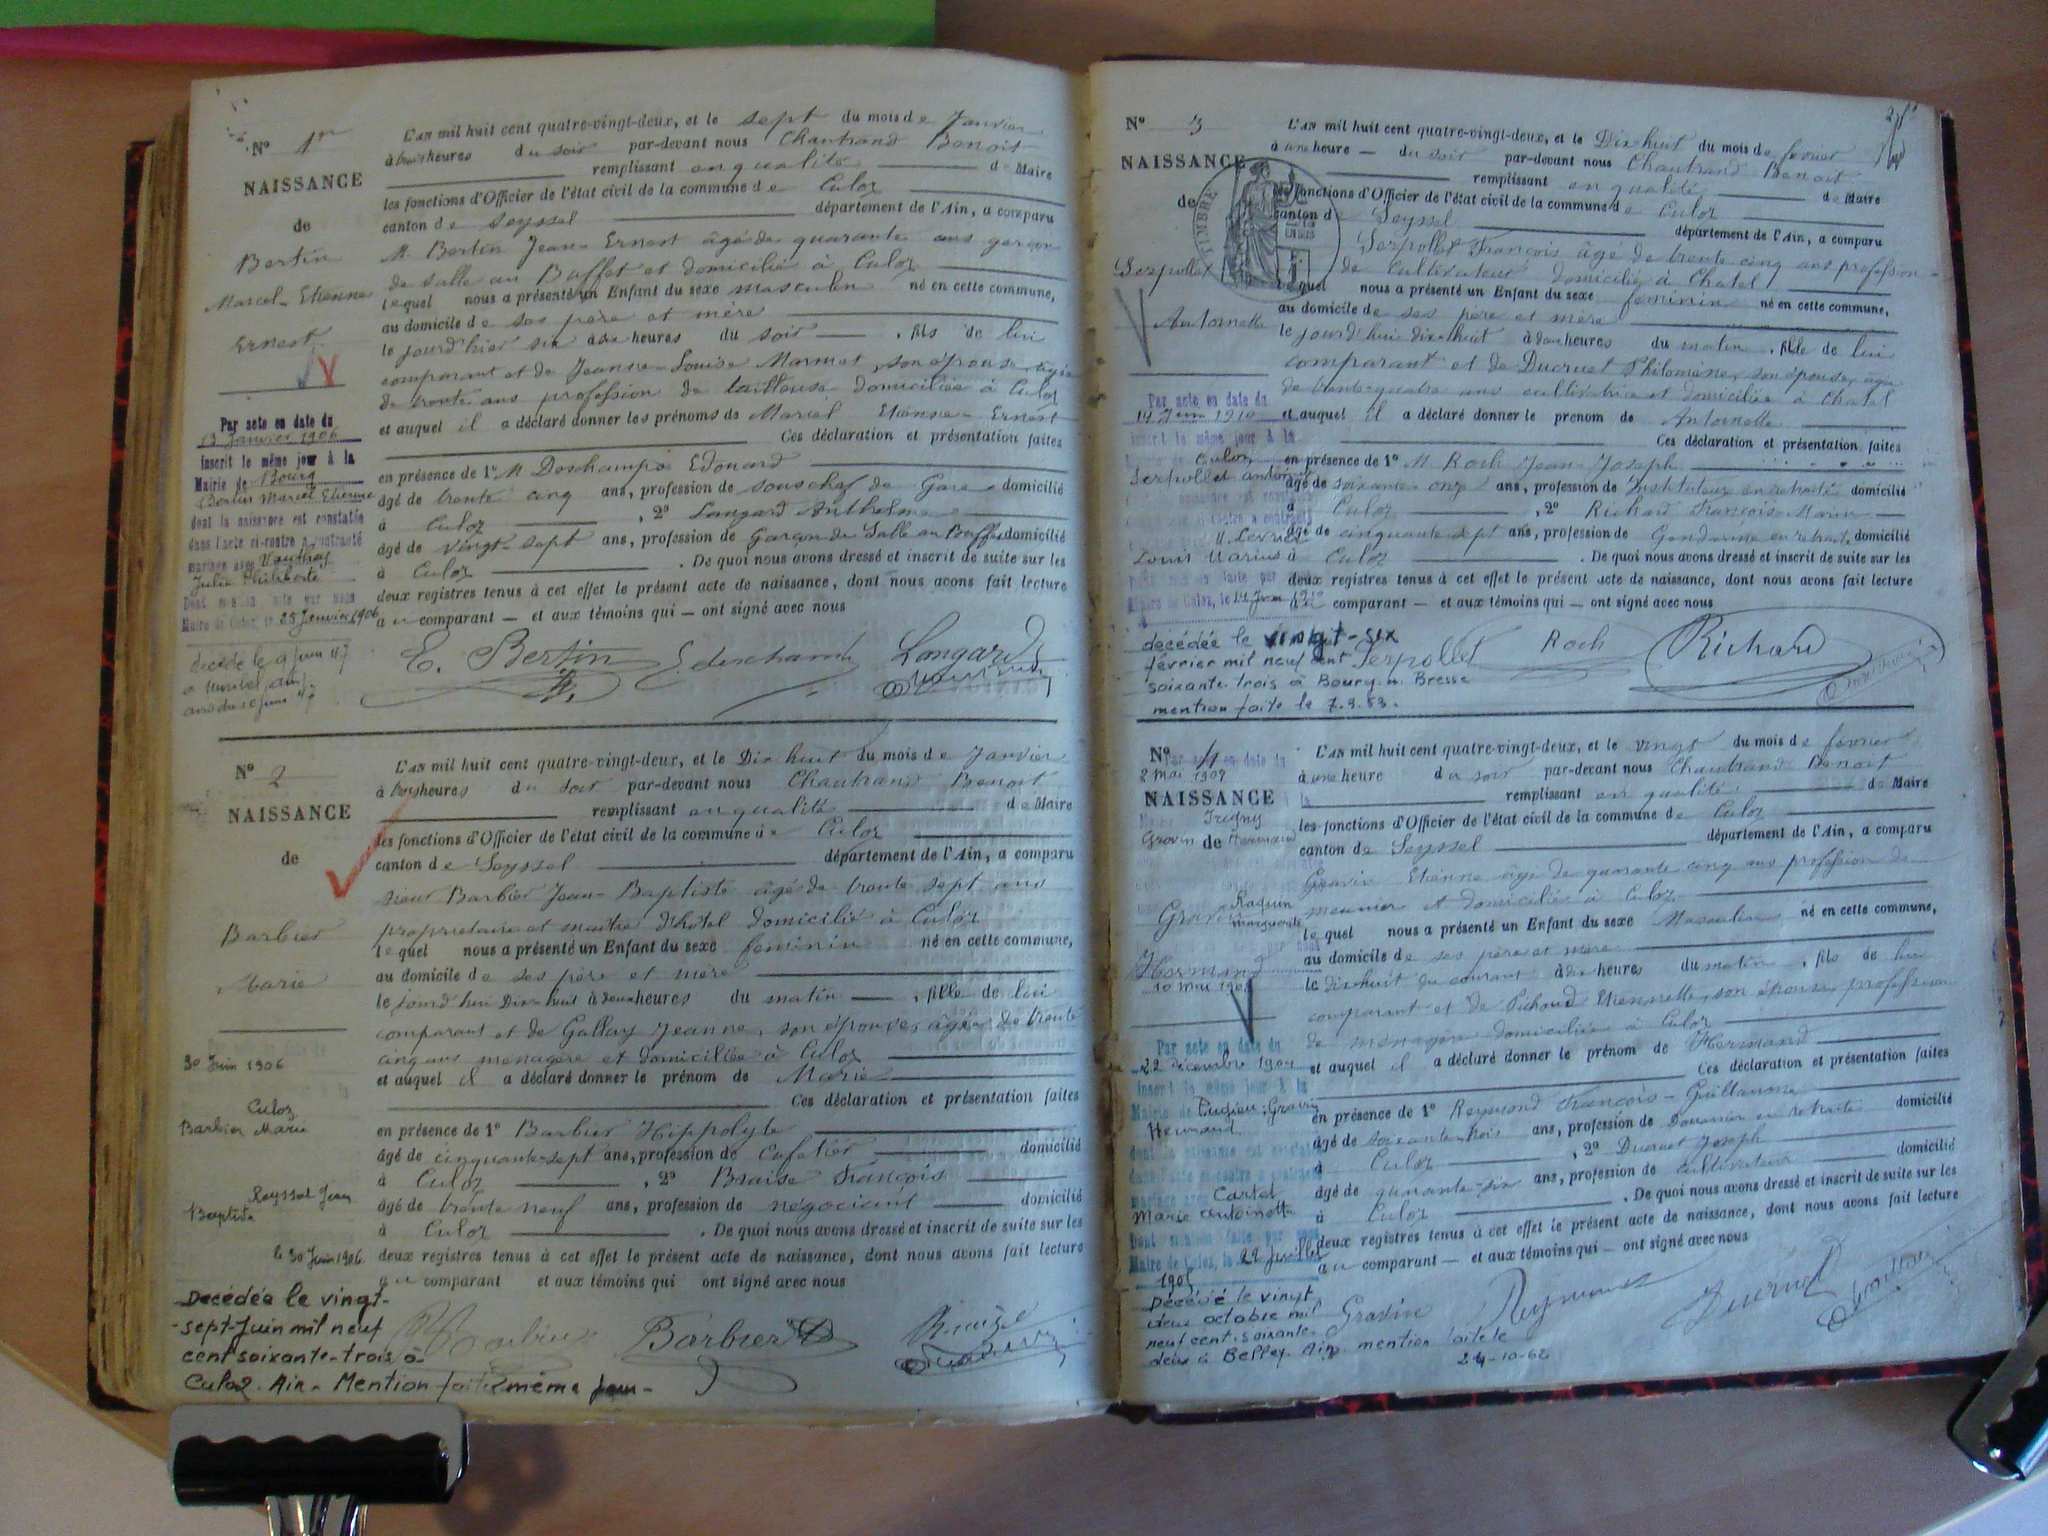 N° 1er
NAISSANCE
de
Bertin
Marcel-Etienne
Ernest
Par acte en date du
13 Janvier 1906
inscrit le même jour à la
Mairie de Bourg
Bertin Marcel Etienne
dont la naissance est constatée
dans l'acte ci-contre a contracté
mariage avec
Julie Philiberte
Dont mention faite par nous
Maire de Culoz, le 25 Janvier 1906
décédé le 9 Juin 47
L'AN mil huit cent quatre-vingt-deux, et le sept du mois de Janvier
à trois heures du soir par-devant nous Chautrand Benoit
remplissant en qualité de Maire
les fonctions d'Officier de l'état civil de la commune de Culoz
canton de Seyssel département de l'Ain, a comparu
M. Bertin Jean-Ernest âgé de quarante ans garçon
de salle au Buffet et domicilié à Culoz
lequel nous a présenté un Enfant du sexe masculin né en cette commune,
au domicile de ses père et mère
le jourd'hier six à dix heures du soir, fils de lui
comparant et de Jeanne-Louise Marmet, son épouse âgée
de trente ans profession de tailleuse domiciliée à Culoz
et auquel il a déclaré donner les prénoms de Marcel Etienne-Ernest
Ces déclaration et présentation faites
en présence de 1° M Deschamps Edouard
âgé de trente cinq ans, profession de sous chef de Gare domicilié
à Culoz, 2° Longard Anthelme
âgé de vingt-sept ans, profession de Garçon de Salle au Buffet domicilié
à Culoz. De quoi nous avons dressé et inscrit de suite sur les
deux registres tenus à cet effet le présent acte de naissance, dont nous avons fait lecture
au comparant — et aux témoins qui — ont signé avec nous
E. Bertin E deschamps Longard
N° 2
NAISSANCE
de
Barbier
Marie
30 Juin 1906
Culoz
Barbier Marie
Jean
Baptiste
le 30 Juin 1906
Décédée le vingt-
-sept Juin mil neuf
cent soixante-trois à
Culoz. Ain. Mention faite même jour-
L'AN mil huit cent quatre-vingt-deux, et le Dix huit du mois de Janvier
à trois heures du soir par-devant nous Chautrand Benoit
remplissant en qualité de Maire
les fonctions d'Officier de l'état civil de la commune de Culoz
canton de Seyssel département de l'Ain, a comparu
sieur Barbier Jean-Baptiste âgé de trente sept ans
propriétaire et maître d'hôtel domicilié à Culoz
lequel nous a présenté un Enfant du sexe feminin né en cette commune,
au domicile de ses père et mère
le jourd'hui Dix huit à deux heures du matin —, fille de lui
comparant et de Gallay Jeanne, son épouse, âgée de trente
cinq ans ménagère et domiciliée à Culoz
et auquel il a déclaré donner le prénom de Marie
Ces déclaration et présentation faites
en présence de 1° Barbier Hippolyte
âgé de cinquante-sept ans, profession de Cafetier domicilié
à Culoz, 2° Braise François
âgé de trente neuf ans, profession de négociant domicilié
à Culoz. De quoi nous avons dressé et inscrit de suite sur les
deux registres tenus à cet effet le présent acte de naissance, dont nous avons fait lecture
au comparant et aux témoins qui ont signé avec nous
Barbier
N° 3
NAISSANCE
de
TIMBRE
Serpollet
Antoinette
Par acte en date du
14 Juin 1910
inscrit le même jour à la
Culoz
Louis Marius
Maire de Culoz, le 14 Juin 1910
décédée le vingt-six
février mil neuf cent
soixante-trois à Bourg en Bresse
mention faite le 7.3.63.
L'AN mil huit cent quatre-vingt-deux, et le Dix huit du mois de fevrier
à une heure — du soir par-devant nous Chautrand Benoit
remplissant en qualité de Maire
les fonctions d'Officier de l'état civil de la commune de Culoz
canton de Seyssel département de l'Ain, a comparu
Serpollet François âgé de trente cinq ans profession
de Cultivateur domicilié à Chatel
lequel nous a présenté un Enfant du sexe féminin né en cette commune,
au domicile de ses père et mère
le jourd'hui dix-huit à deux heures du matin, fille de lui
comparant et de Ducruet Philomene, son épouse, âgée
de trente-quatre ans cultivatrice et domiciliée à Chatel
et auquel il a déclaré donner le prenom de Antoinette
Ces déclaration et présentation faites
en présence de 1° M Roch Jean-Joseph
âgé de soixante-onze ans, profession de Instituteur en retraite domicilié
à Culoz, 2° Richard François-Marie
âgé de cinquante sept ans, profession de Gendarme en retraite domicilié
à Culoz. De quoi nous avons dressé et inscrit de suite sur les
deux registres tenus à cet effet le présent acte de naissance, dont nous avons fait lecture
au comparant — et aux témoins qui — ont signé avec nous
Serpollet Roch Richard
N° 4
Par acte en date du
2 Mai 1907
NAISSANCE
de
Gravin
Hermand
10 Mai 1907
Par acte en date du
22 décembre 1904
inscrit le même jour à la
Mairie de
Cartet
Marie Antoinette
Dont mention faite par nous
Maire de Culoz, le 22 Juillet
1905
Décédé le vingt
deux octobre mil
neuf cent soixante
deux à Belley. Ain. mention faite le
24-10-62
L'AN mil huit cent quatre-vingt-deux, et le vingt du mois de fevrier
à une heure du soir par-devant nous Chautrand Benoit
remplissant en qualité de Maire
les fonctions d'Officier de l'état civil de la commune de Culoz
canton de Seyssel département de l'Ain, a comparu
Gravin Etienne âgé de quarante cinq ans profession de
meunier et domicilié à Culoz
lequel nous a présenté un Enfant du sexe Masculin né en cette commune,
au domicile de ses père et mère
le dix-huit du courant à dix heures du matin, fils de lui
comparant et de Pichoud Etiennette, son épouse, profession
de ménagère domiciliée à Culoz
et auquel il a déclaré donner le prénom de Hermand
Ces déclaration et présentation faites
en présence de 1° Reymond François-Guillaume
âgé de soixante-trois ans, profession de Douanier en retraite domicilié
à Culoz, 2° Ducruet Joseph
âgé de quarante-six ans, profession de cultivateur domicilié
à Culoz. De quoi nous avons dressé et inscrit de suite sur les
deux registres tenus à cet effet le présent acte de naissance, dont nous avons fait lecture
au comparant — et aux témoins qui — ont signé avec nous
Gravin Reymond Ducruet